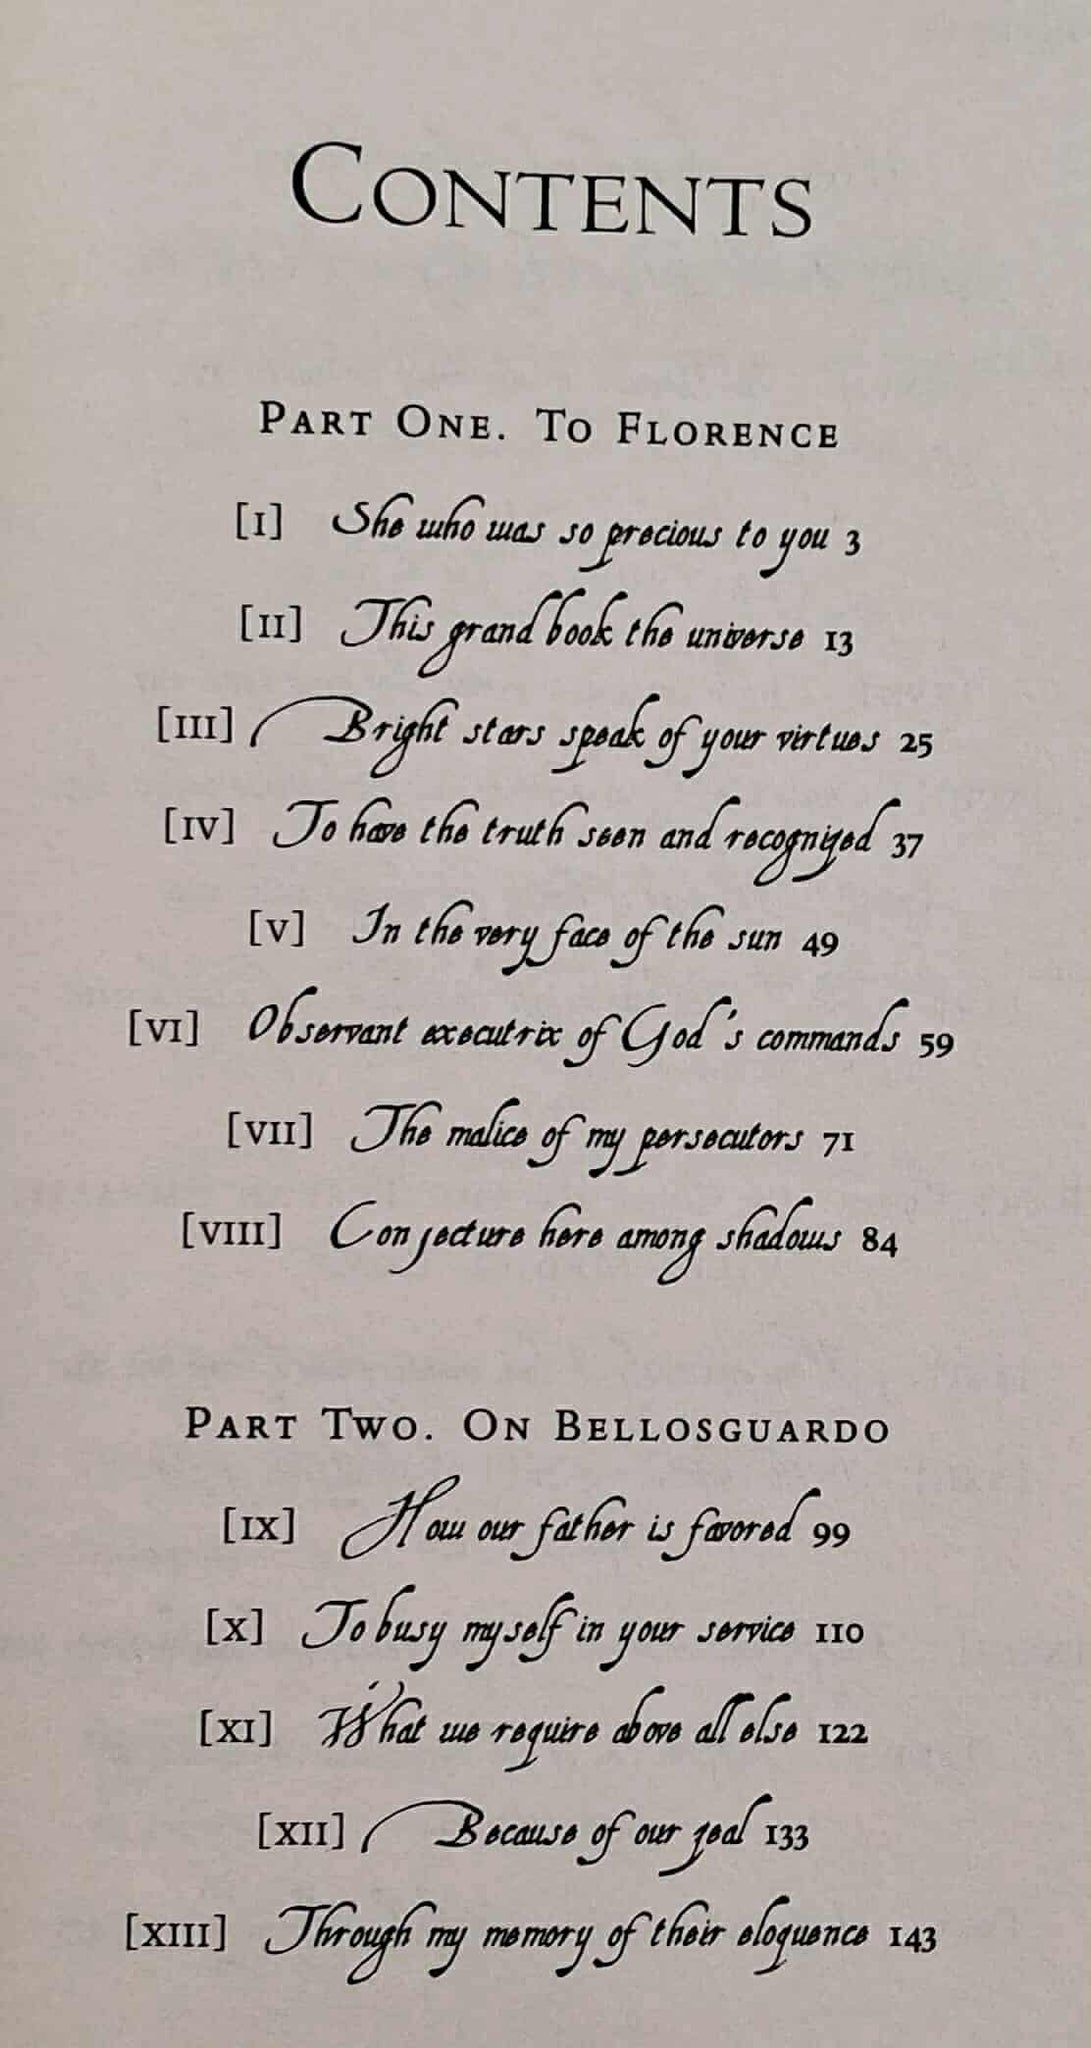 CONTENTS
PART ONE. TO FLORENCE
[I] She who was so precious to you 3
[II] This grand book the universe 13
[III] Bright stars speak of your virtues 25
[IV] To have the truth seen and recognized 37
[V] In the very face of the sun 49
[VI] Observant executrix of God's commands 59
[VII] The malice of my persecutors 71
[VIII] Conjecture here among shadows 84
PART TWO. ON BELLOSGUARDO
[IX] How our father is favored 99
[X] To busy myself in your service 110
[XI] What we require above all else 122
[XII] Because of our zeal 133
[XIII] Through my memory of their eloquence 143